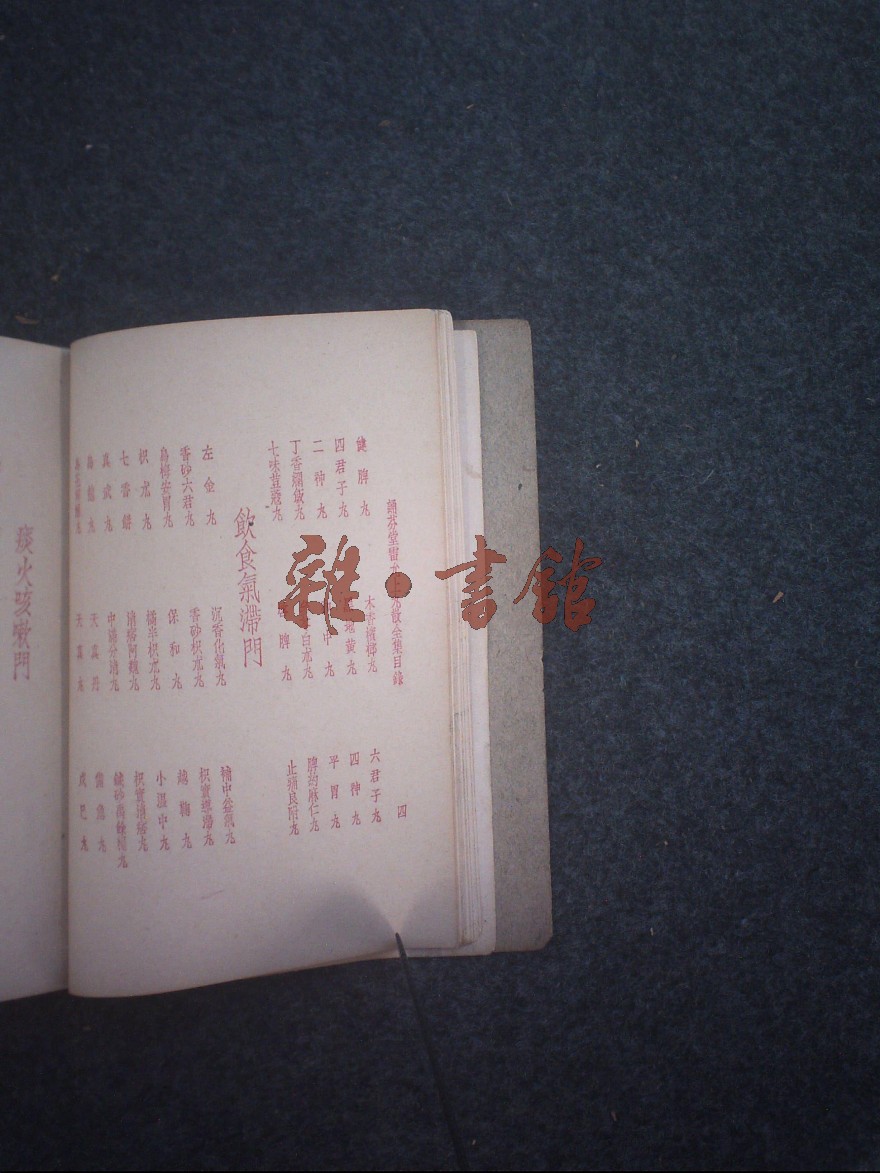 誦芬堂雷允上丸散全集目錄
四
健脾丸
木香檳榔丸
六君子丸
四君子丸
地黄丸
四神丸
二神丸
中丸
平胃丸
丁香爛飯丸
白朮丸
脾約麻仁丸
七味荳蔻丸
脾丸
止痛良附丸
飲食氣滯門
左金丸
沉香化氣丸
補中益氣丸
香砂六君丸
香砂枳朮丸
枳實導滯丸
烏梅安胃丸
保和丸
越鞠丸
枳朮丸
橘半枳朮丸
小溫中丸
七香餅
消痞阿魏丸
枳實消痞丸
真武丸
中滿分消丸
天真丹
備急丸
天真丸
戊己丸
痰火咳嗽門
雜·書館